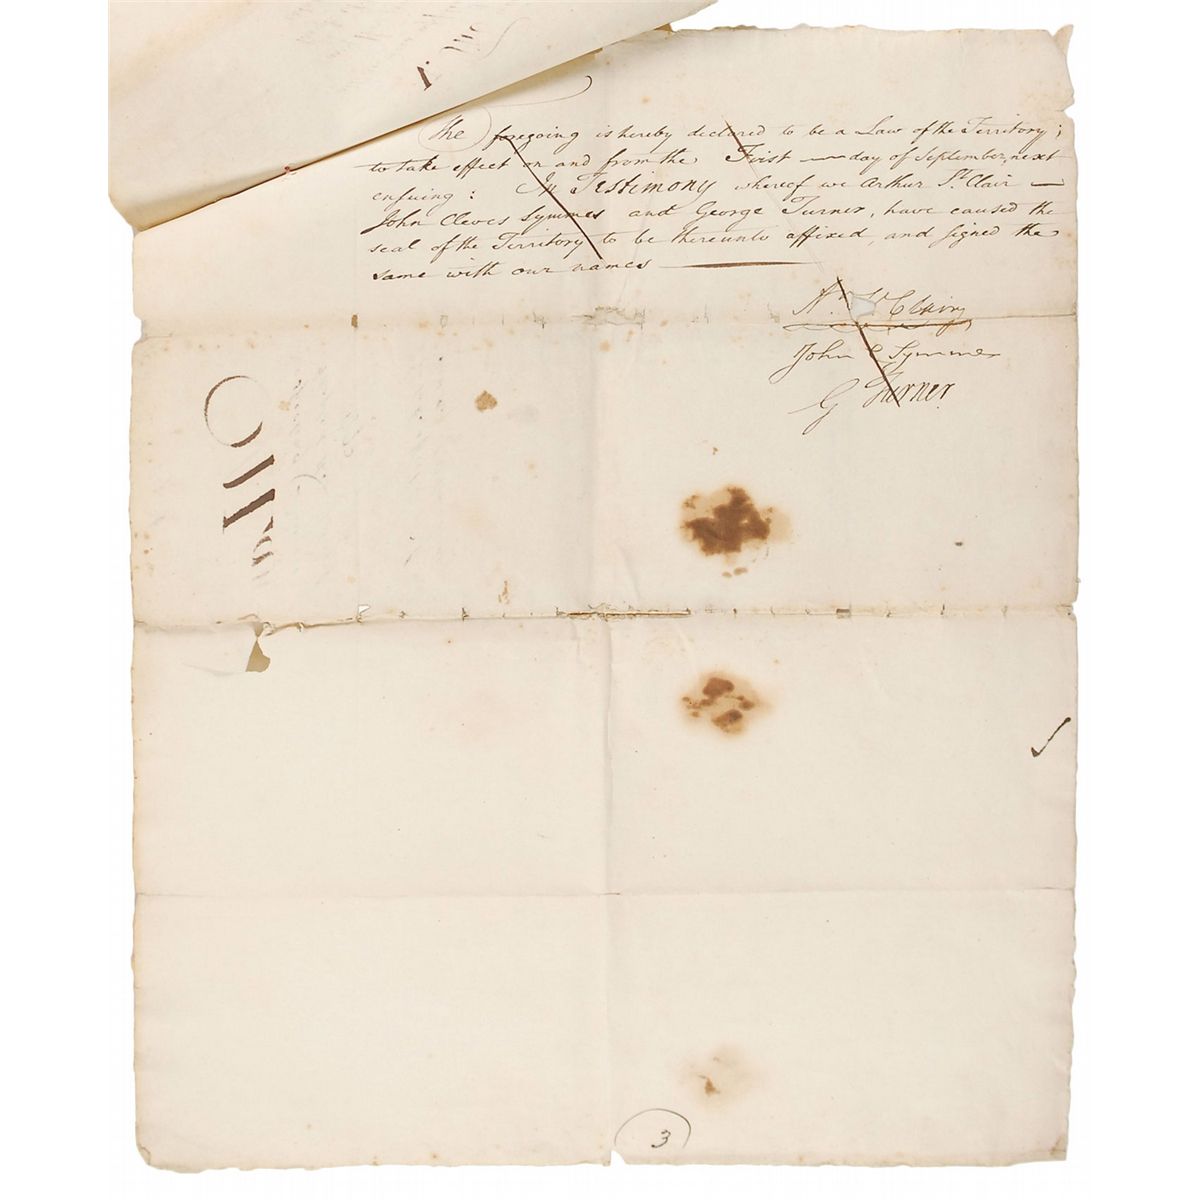 The foregoing is hereby declared to be a Law of the Territory;
to take effect on and from the First day of September, next
ensuing: In Testimony whereof we Arthur St. Clair —
John Cleves Symmes and George Turner, have caused the
seal of the Territory to be thereunto affixed, and signed the
same with our names ———
Ar. St. Clair
John C Symmes
G Turner.
3